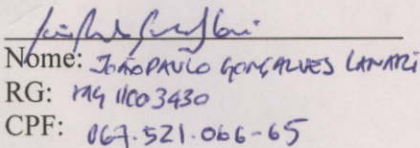 Nome: JOÃO PAULO GONÇALVES LANARI
RG: MG 11003430
CPF: 067.521.066-65